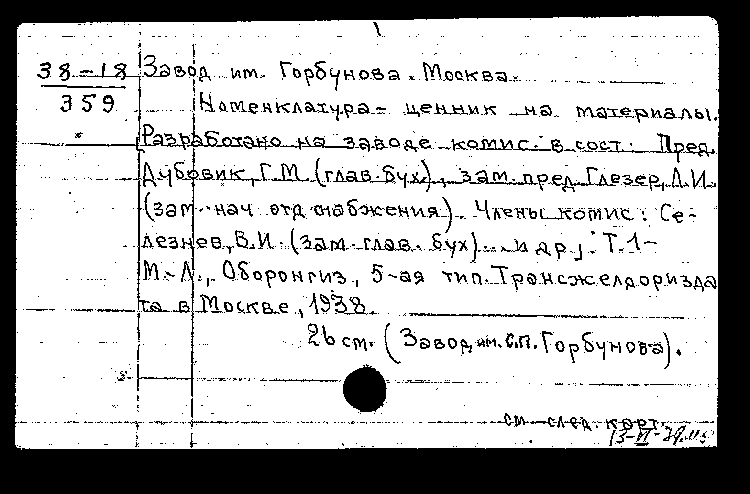 38-18
359
Завод им. Горбунова. Москва.
Номенклатура-ценник на материалы.
Разработано на заводе комис. в сост: Пред.
Дубовик, Г.М. (глав.бух), зам.пред.Глезер, Л.И.
(зам. нач отд снабжения). Члены комис: Се-
лезнев, В.И. (зам.глав. бух)... и др.; Т.1-
М.-Л., Оборонгиз, 5-ая тип. Трансжелдоризда
та в Москве, 1938.
26 см. (Завод им. С.П. Горбунова).
см след. карт.
13-VI-39